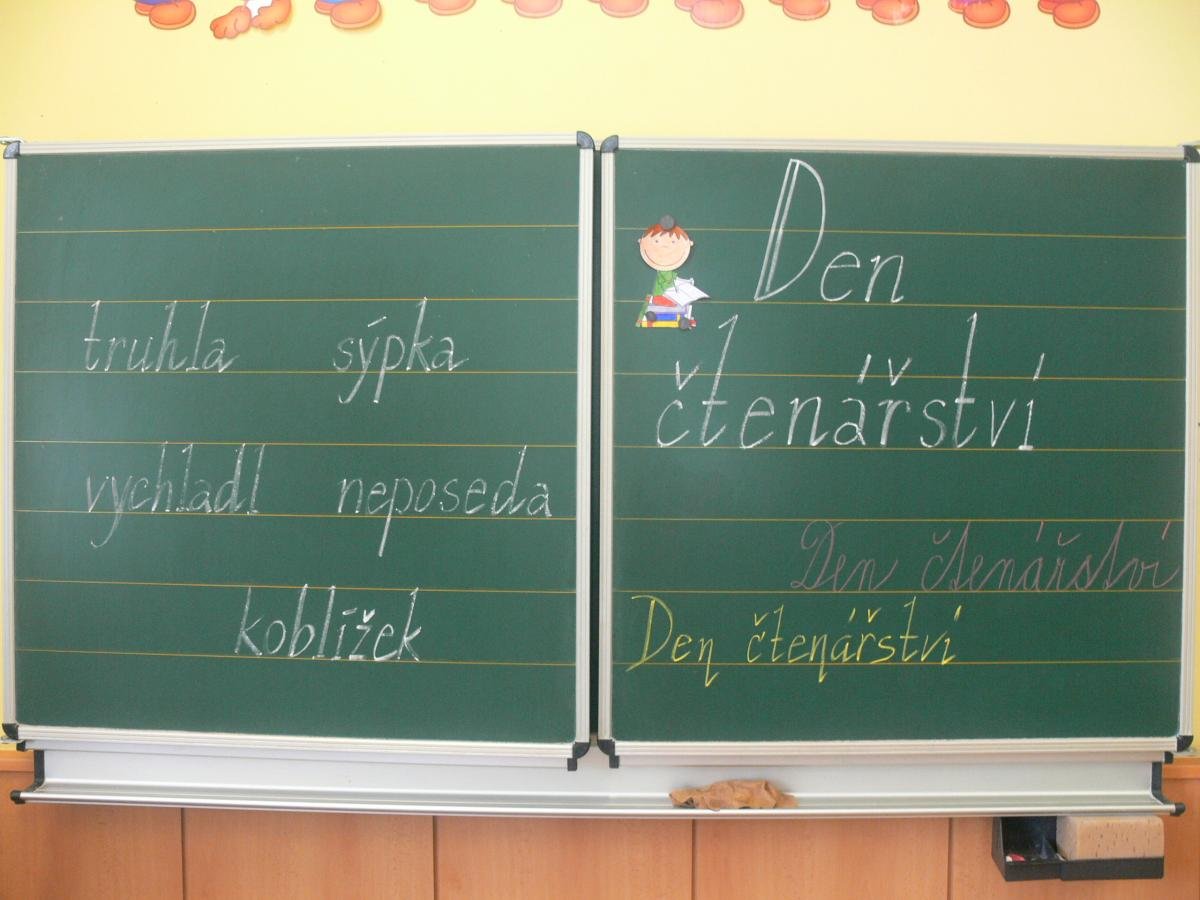 truhla sýpka
vychladl neposeda
koblížek
Den
čtenářství
Den čtenářství
Den čtenářství